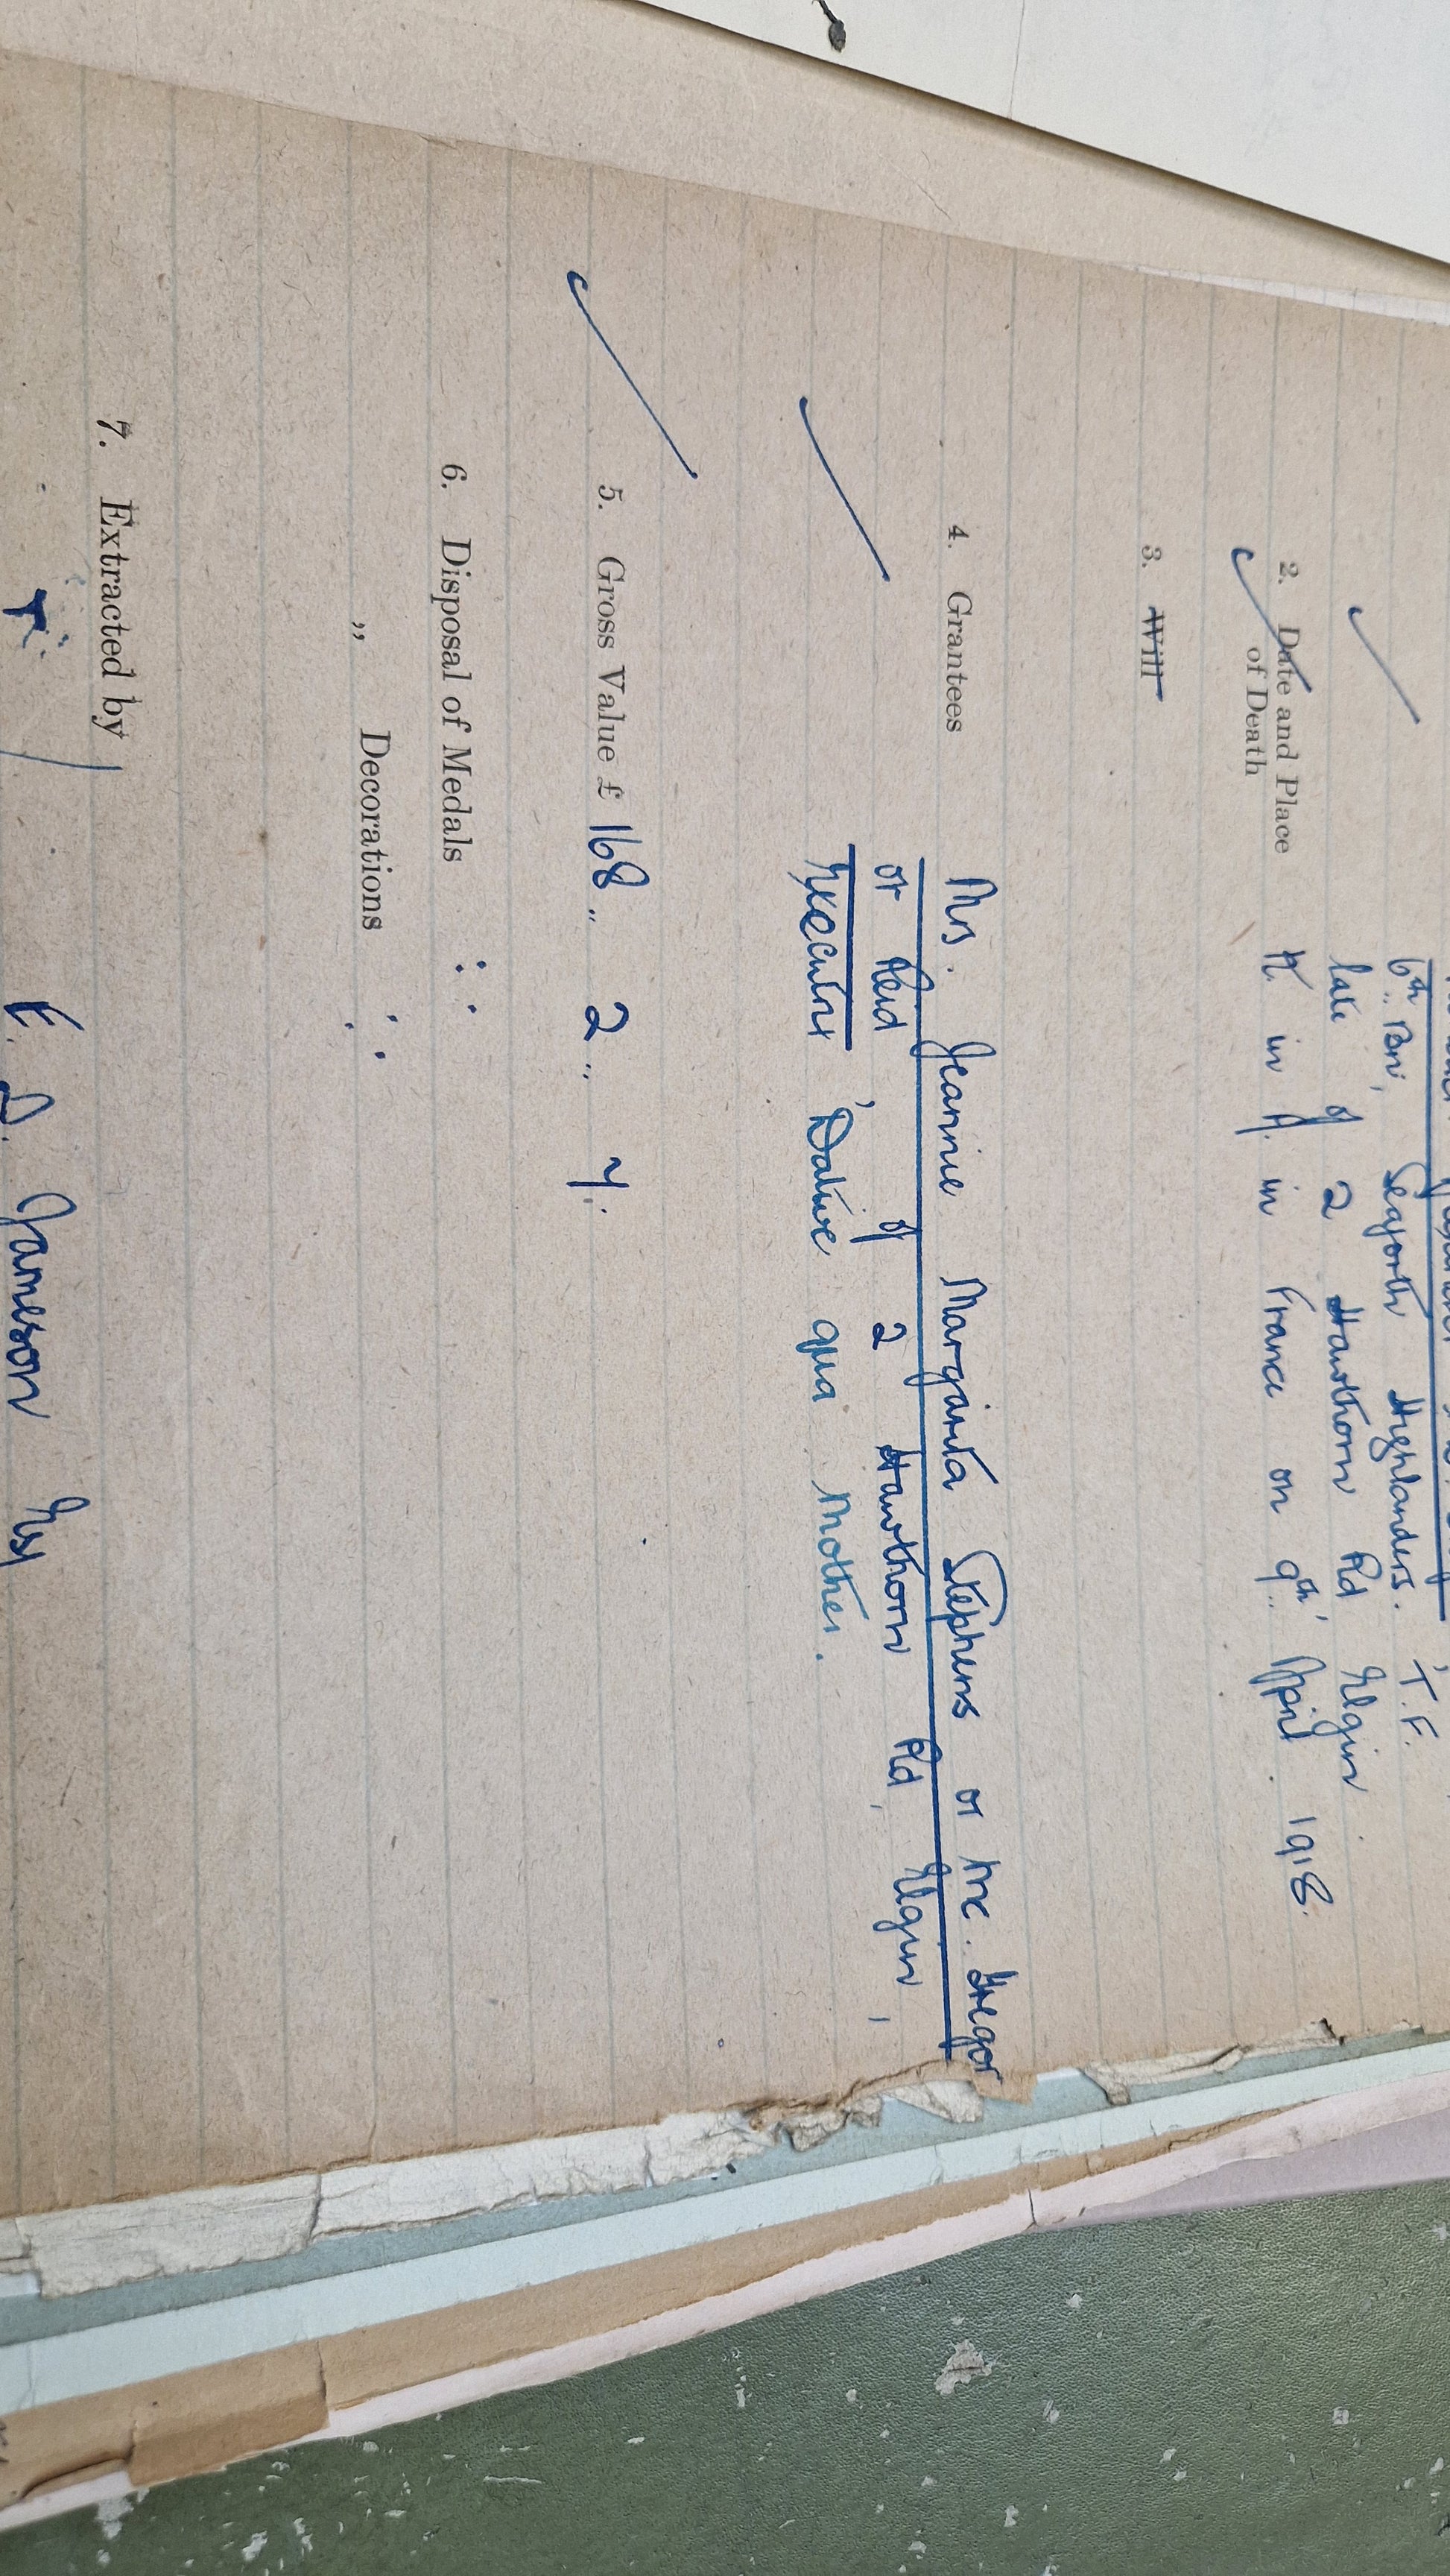 6th Bn, Seaforth Highlanders, T.F.
late of 2 Hawthorn Rd Elgin.
2. Date and Place of Death K. in A. in France on 9th April 1918.
3. Will
4. Grantees Mrs. Jeannie Margarita Stephens or Mc. Gregor
or Reid of 2 Hawthorn Rd, Elgin,
Executrix, Dative qua Mother.
5. Gross Value £ 168 " 2 " 7.
6. Disposal of Medals :
" Decorations :
7. Extracted by
E. D. Jameson Esq